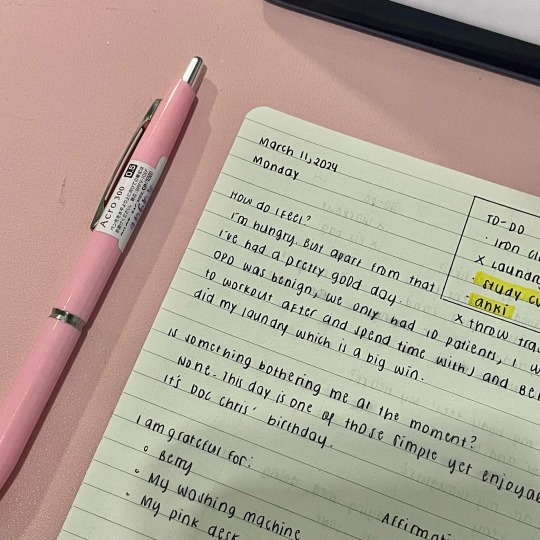 Acro 300 0.5
March 11, 2024
Monday
TO-DO
· Iron
x Laundry
· study
· anki
x throw
How do I feel?
I'm hungry. But apart from that,
I've had a pretty good day.
OPD was benign, we only had 10 patients, I
to workout after and spend time with J and
did my laundry which is a big win.
Is something bothering me at the moment?
None. This day is one of those simple yet
It's Doc Chris' birthday.
I am grateful for:
° Berry
° My washing machine
° My pink desk